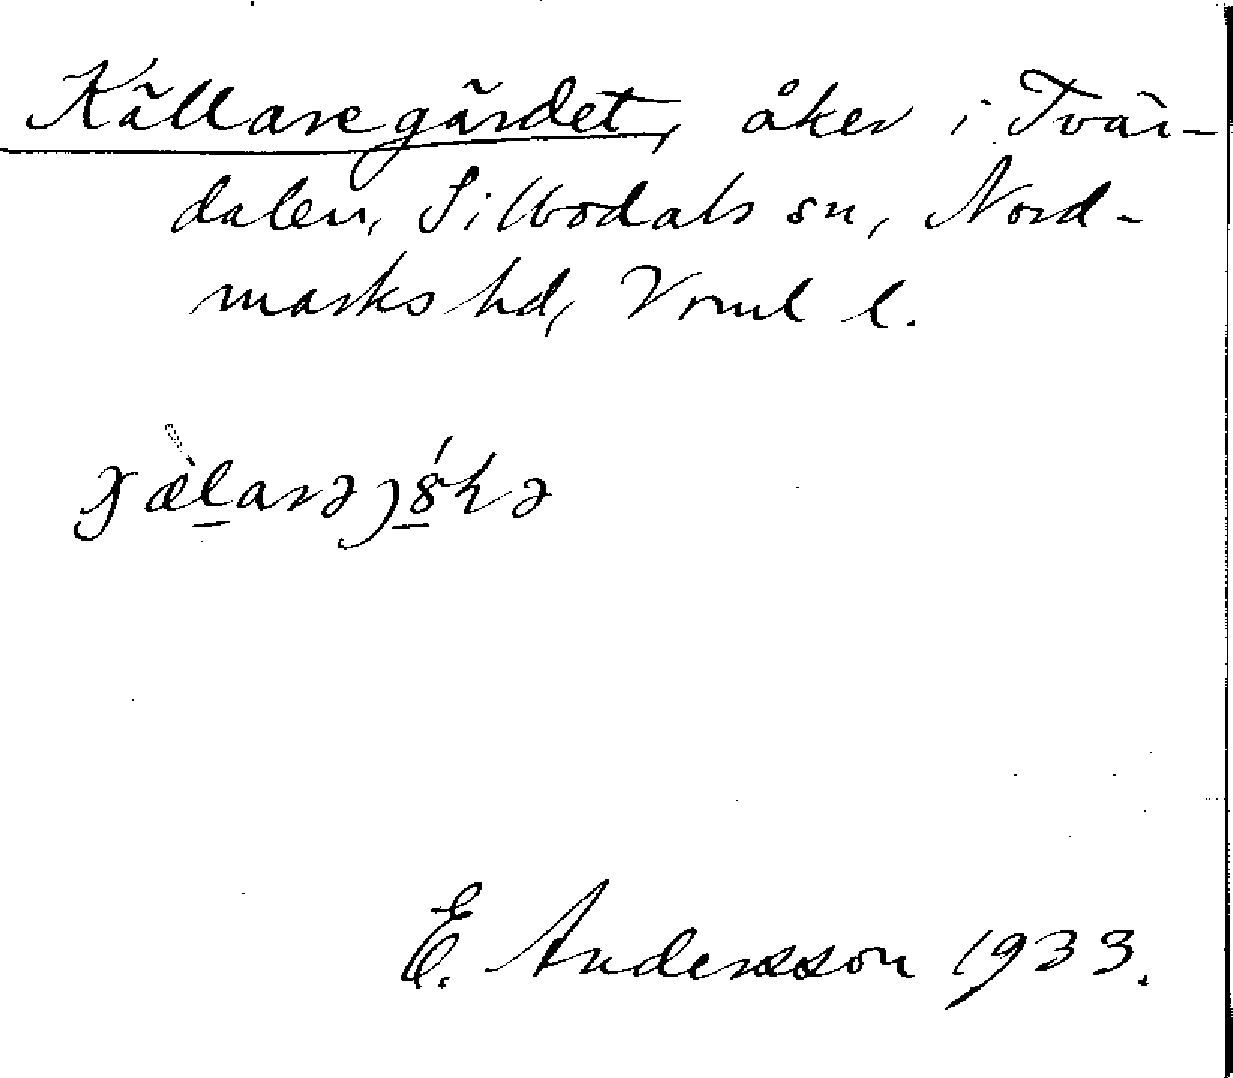 Källaregärdet, åker i Tvär-
dalen, Sillbodals sn, Nord-
marks hd, Vrml l.
E. Andersson 1933.